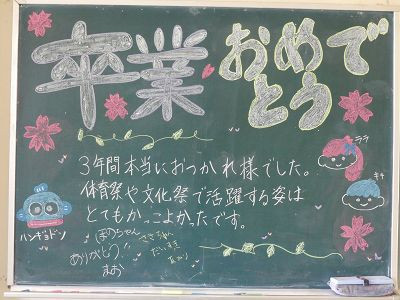 卒業おめでとう
3年間本当におつかれ様でした。
体育祭や文化祭で活躍する姿は
とてもかっこよかったです。
ララ
キキ
ハンギョドン
ほのちゃん
ありがとう!!
まお